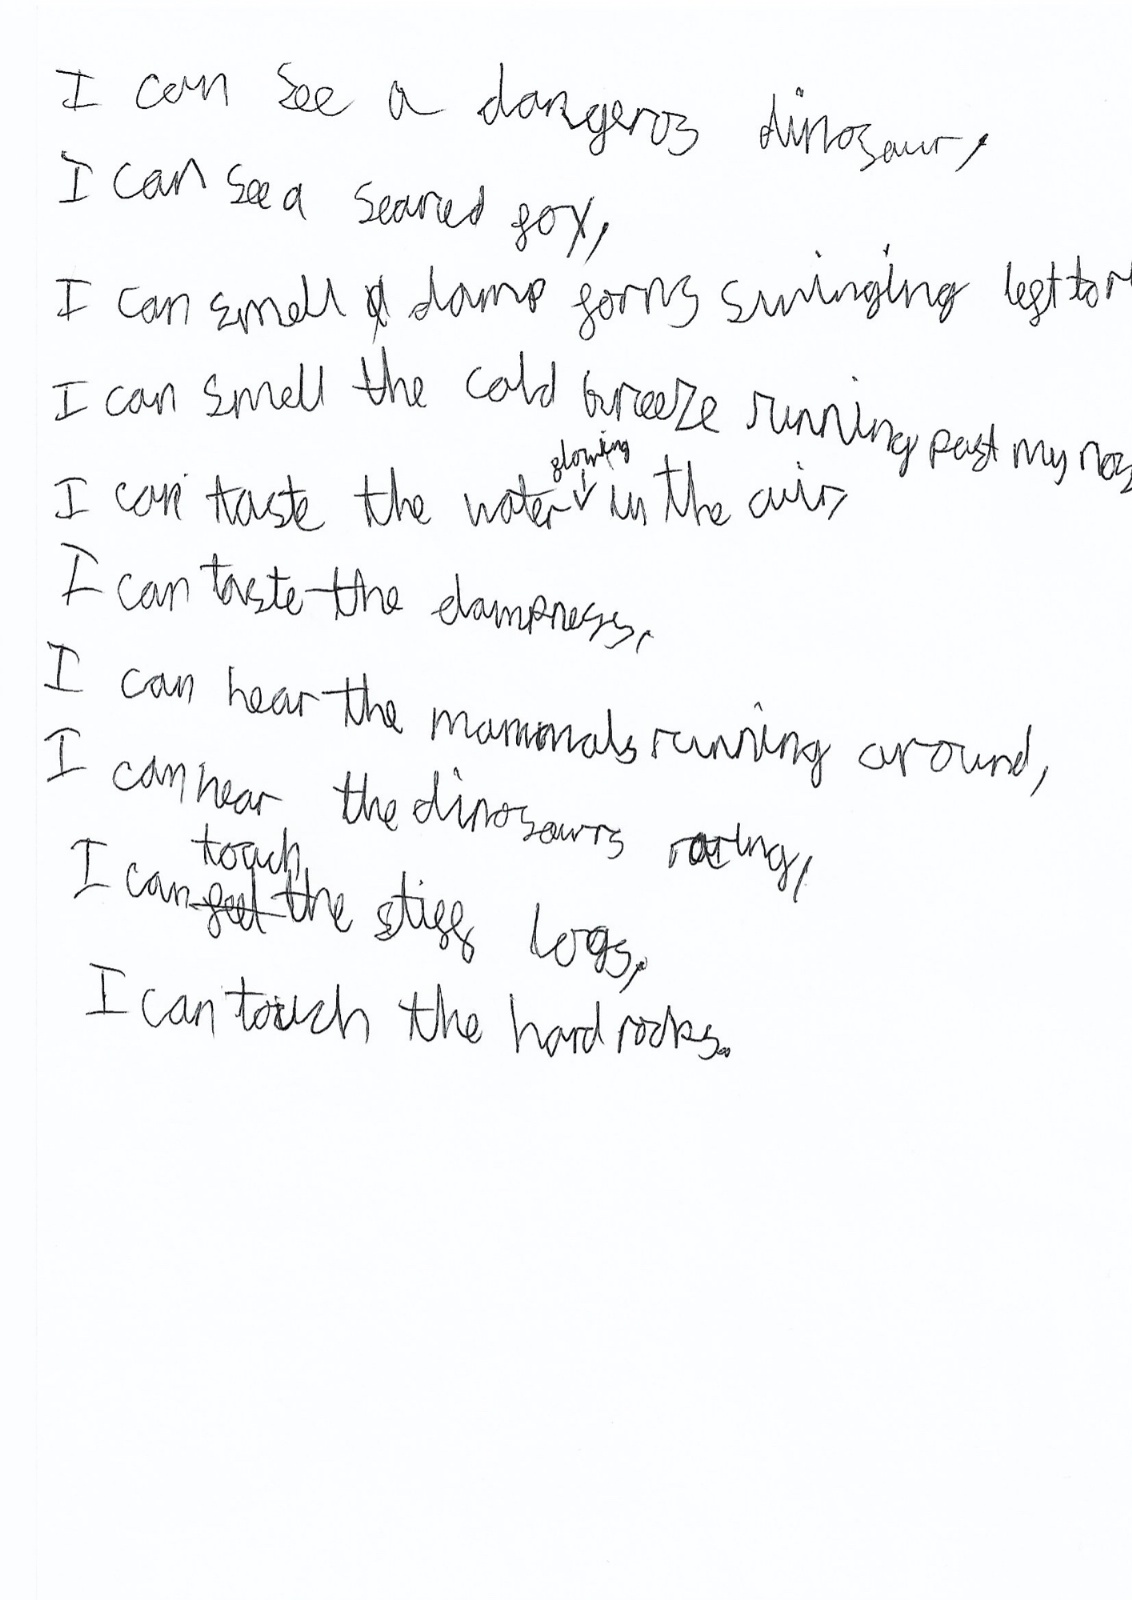 I can see a dangeros dinosaur,
I can see a scared fox,
I can smell damp forns swinging left to
I can smell the cold breeze running past my
I can taste the water flowing in the air,
I can taste the dampness,
I can hear the mammals running around,
I can hear the dinosaurs roaring,
I can touch the stiff logs,
I can touch the hard rocks.